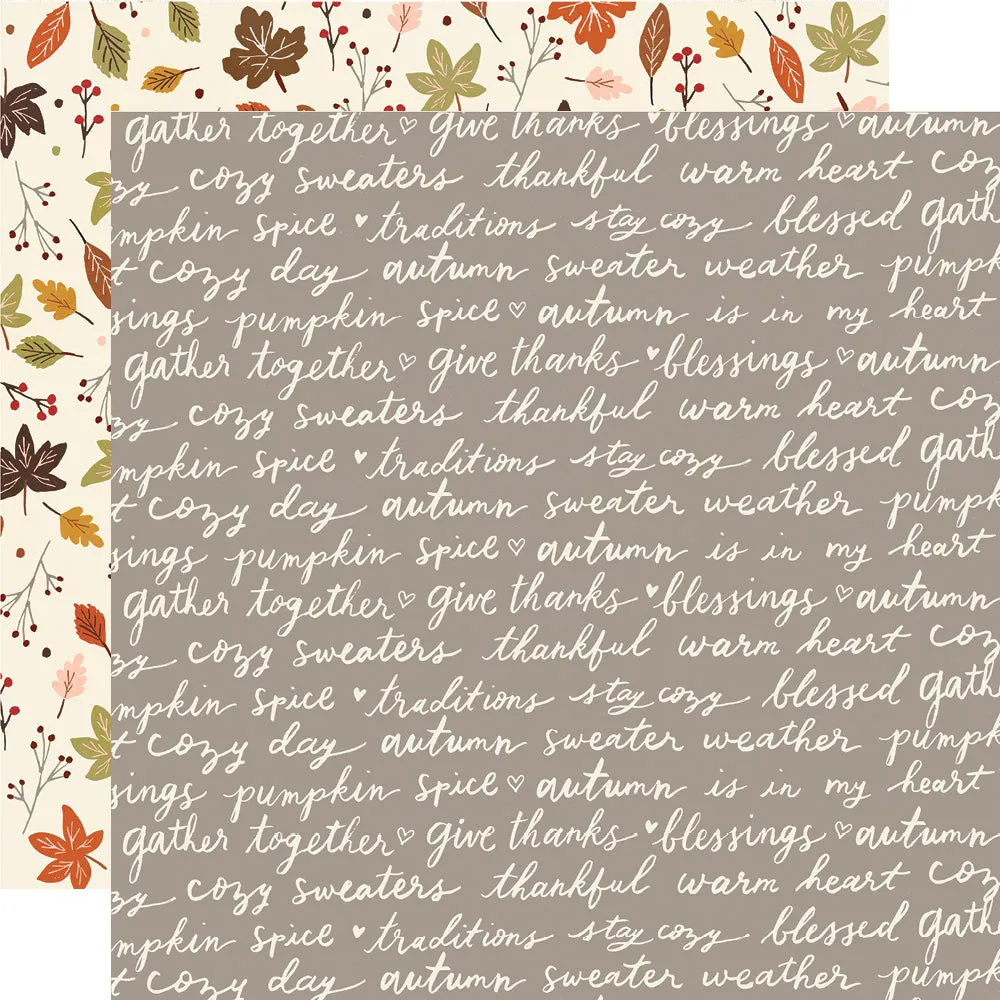 gather together ♡ give thanks ♥ blessings ♡ autumn
zy cozy sweaters thankful warm heart coz
mpkin spice ♥ traditions stay cozy blessed gath
t cozy day autumn sweater weather pumpk
sings pumpkin spice ♡ autumn is in my heart
gather together ♡ give thanks ♥ blessings ♡ autumn
zy cozy sweaters thankful warm heart coz
mpkin spice ♥ traditions stay cozy blessed gath
t cozy day autumn sweater weather pumpk
sings pumpkin spice ♡ autumn is in my heart
gather together ♡ give thanks ♥ blessings ♡ autumn
zy cozy sweaters thankful warm heart coz
mpkin spice ♥ traditions stay cozy blessed gath
t cozy day autumn sweater weather pumpk
sings pumpkin spice ♡ autumn is in my heart
gather together ♡ give thanks ♥ blessings ♡ autumn
zy cozy sweaters thankful warm heart coz
mpkin spice ♥ traditions stay cozy blessed gath
t cozy day autumn sweater weather pumpk